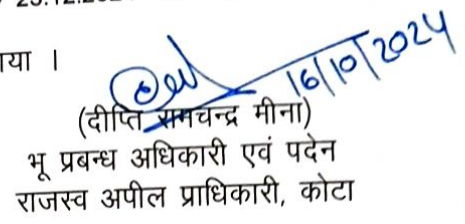 23.12.202
गया ।
16/10/2024
(दीप्ति रामचन्द्र मीना)
भू प्रबन्ध अधिकारी एवं पदेन
राजस्व अपील प्राधिकारी, कोटा